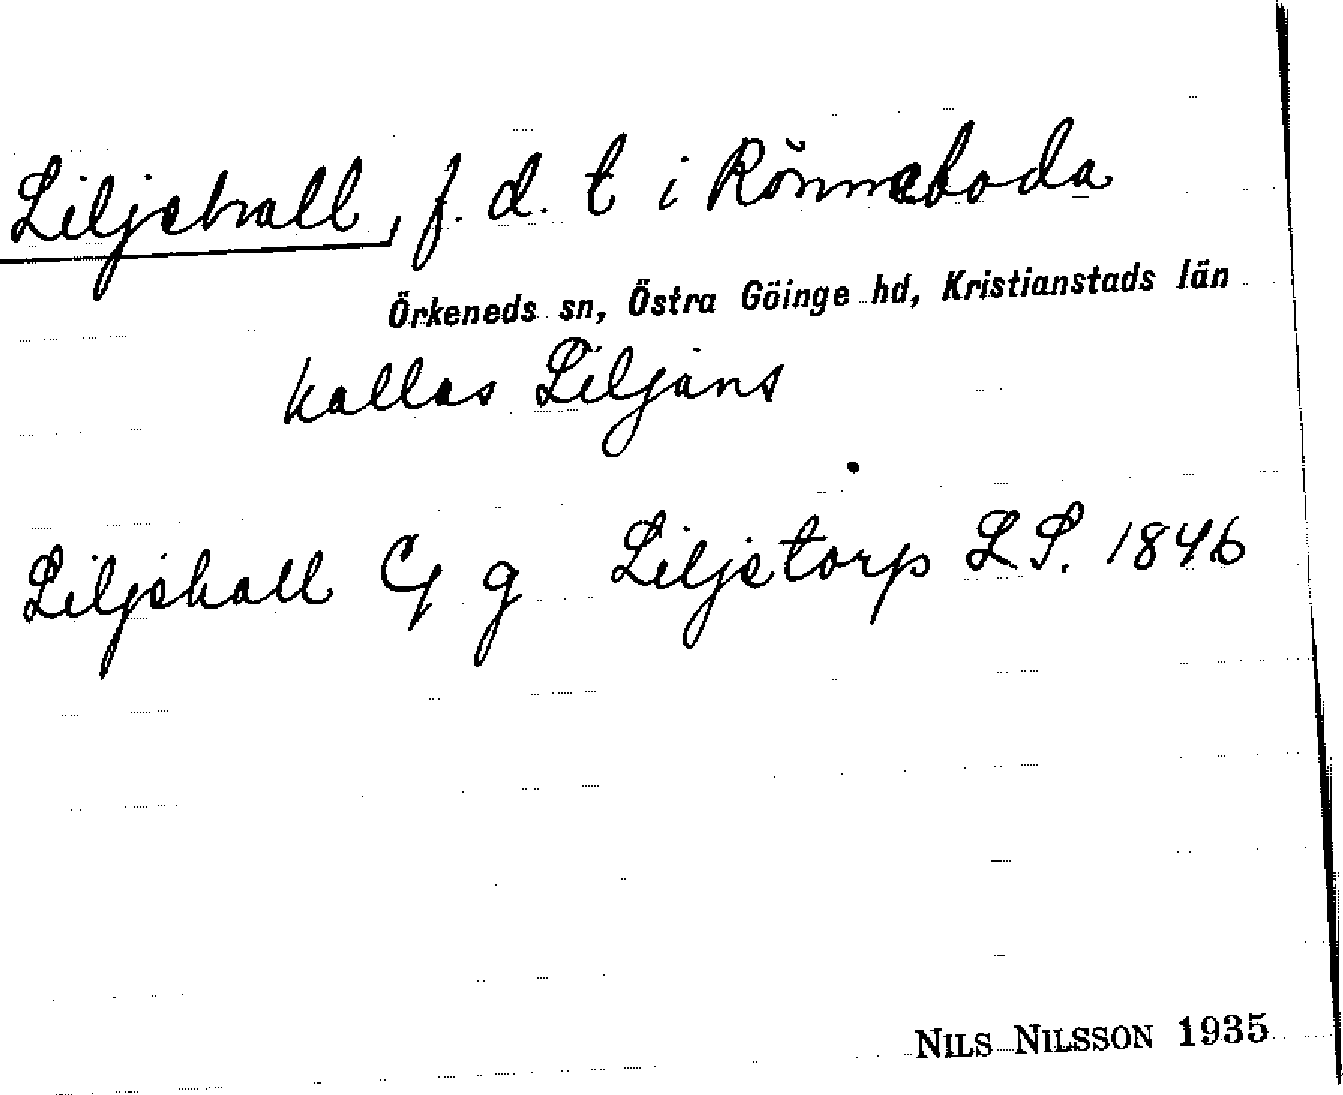 Liljehall, f. d. t i Rönneboda
Örkeneds sn, Östra Göinge hd, Kristianstads län
kallas Liljans
Liljehall Cf g Liljetorp L S. 1846
NILS NILSSON 1935